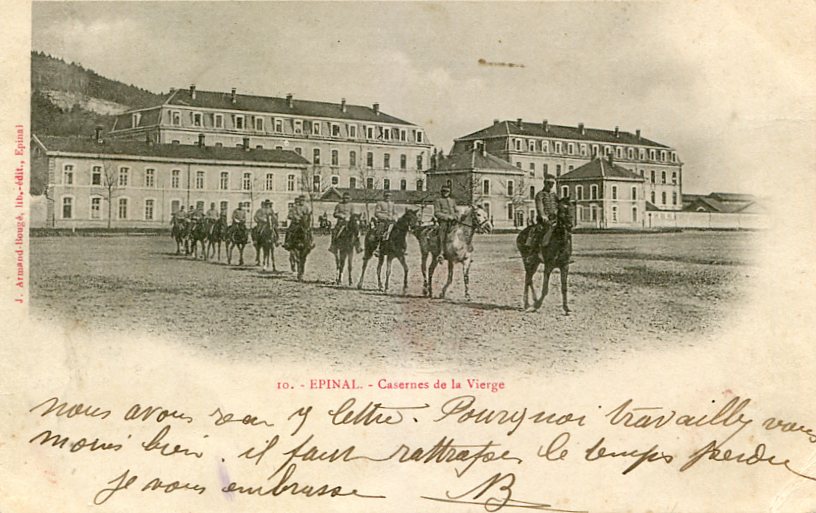 J. Armand-Bougé, lib.-édit., Epinal
10. - EPINAL. - Casernes de la Vierge
nous avons reçu y lettre. Pourquoi travaillez vous
moins bien. il faut rattrapper le temps perdu
je vous embrasse NB